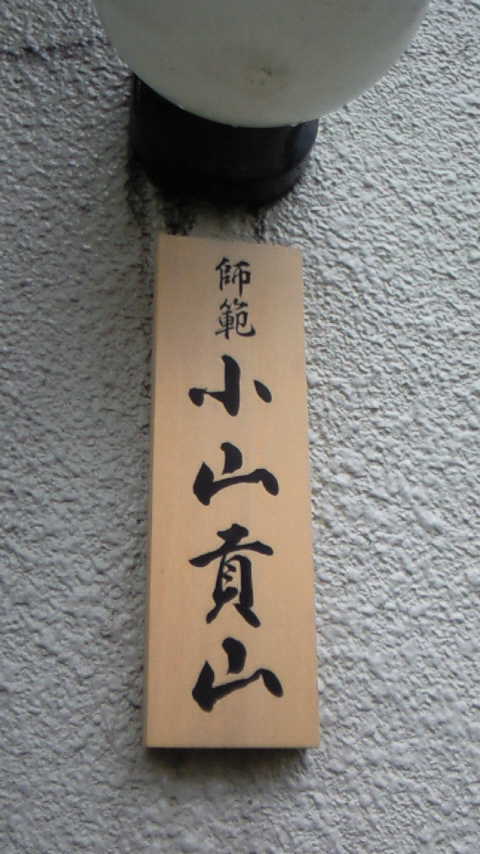 師範
小山貢山